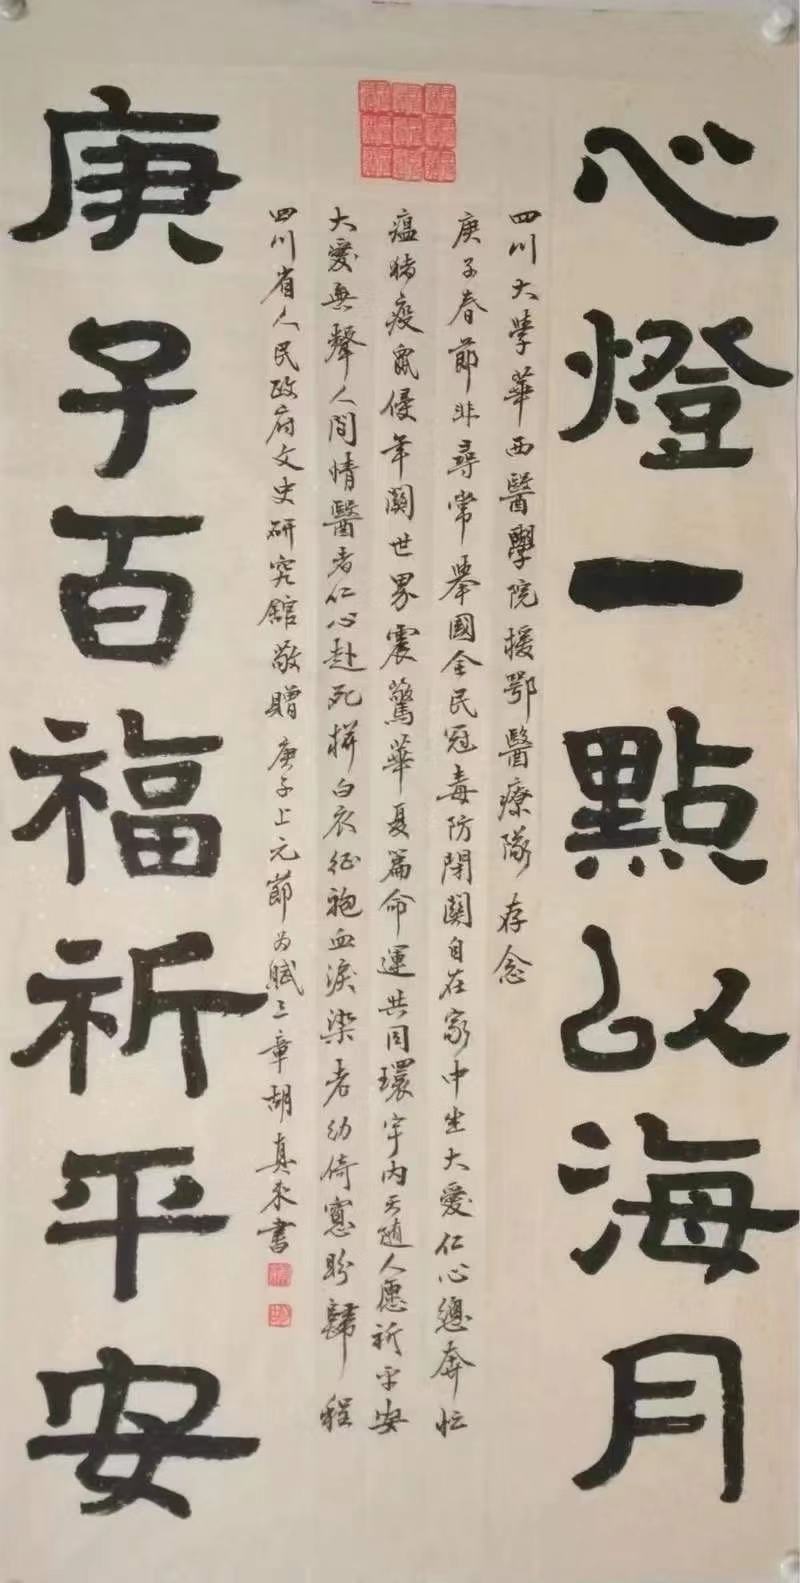 心燈一點以海月
四川大學華西醫學院援鄂醫療隊存念
庚子春節非尋常舉國全民冠毒防閉關自在家中坐大愛仁心總奔忙
瘟豬疫鼠侵年關世界震驚華夏篇命運共同環宇内天随人愿祈平安
大愛無聲人間情醫者仁心赴死拼白衣征袍血淚染老幼倚窻盼歸程
四川省人民政府文史研究館敬贈庚子上元節为賦三章胡真来書
庚子百福祈平安